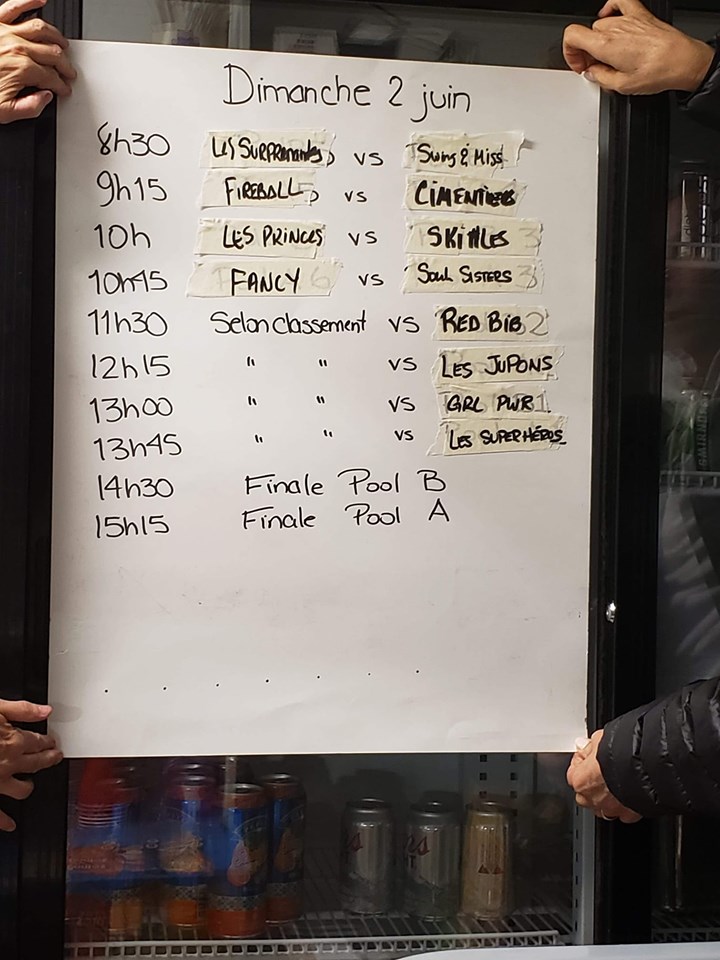 Dimanche 2 juin
8h30 vs Swing & Miss
9h15 FIREBALL vs CIMENTIERS
10h LES PRINCES vs SKITTLES 3
10h45 FANCY 6 vs Soul SISTERS 3
11h30 Selon classement vs RED BIB 2
12h15 " " vs LES JUPONS
13h00 " " vs GRL PWR 1
13h45 " " vs LES SUPER HÉROS
14h30 Finale Pool B
15h15 Finale Pool A